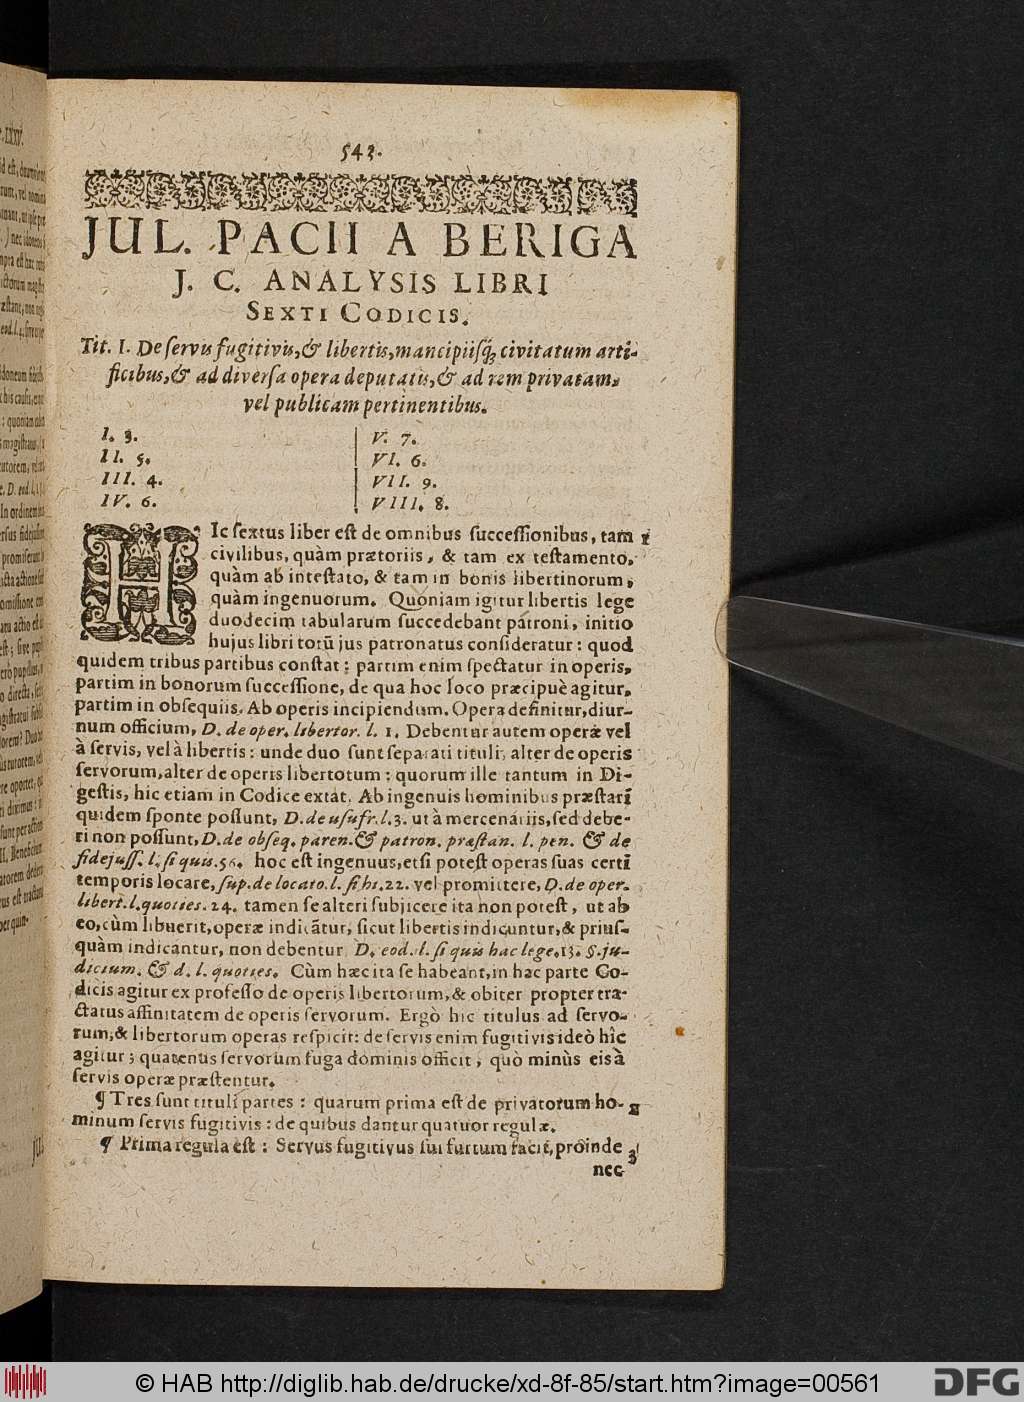 543.
JUL. PACII A BERIGA
J. C. ANALYSIS LIBRI
SEXTI CODICIS.
Tit. I. De servis fugitivis, & libertis, mancipiisq; civitatum arti-
ficibus, & ad diversa opera deputatis, & ad rem privatam,
vel publicam pertinentibus.
I. 3.
II. 5.
III. 4.
IV. 6.
V. 7.
VI. 6.
VII. 9.
VIII. 8.
HIc sextus liber est de omnibus successionibus, tam 1
civilibus, quàm prætoriis, & tam ex testamento,
quàm ab intestato, & tam in bonis libertinorum,
quàm ingenuorum. Quoniam igitur libertis lege
duodecim tabularum succedebant patroni, initio
hujus libri totũ jus patronatus consideratur: quod
quidem tribus partibus constat: partim enim spectatur in operis,
partim in bonorum successione, de qua hoc loco præcipuè agitur,
partim in obsequiis. Ab operis incipiendum. Opera definitur, diur-
num officium, D. de oper. libertor. l. 1. Debentur autem operæ vel
à servis, vel à libertis: unde duo sunt separati tituli, alter de operis
servorum, alter de operis libertotum: quorum ille tantum in Di-
gestis, hic etiam in Codice extat. Ab ingenuis hominibus præstari
quidem sponte possunt, D. de usufr. l. 3. ut à mercenariis, sed debe-
ri non possunt, D. de obseq. paren. & patron. præstan. l. pen. & de
fidejuss. l. si quis. 56. hoc est ingenuus, etsi potest operas suas certi
temporis locare, sup. de locato. l. si hi. 22. vel promittere, D. de oper.
libert. l. quoties. 24. tamen se alteri subjicere ita non potest, ut ab
eo, cùm libuerit, operæ indicãtur, sicut libertis indicuntur, & prius-
quàm indicantur, non debentur D. eod. l. si quis hac lege. 13. §. ju-
dicium. & d. l. quoties. Cùm hæc ita se habeant, in hac parte Co-
dicis agitur ex professo de operis libertorum, & obiter propter tra-
ctatus affinitatem de operis servorum. Ergò hic titulus ad servo-
rum, & libertorum operas respicit: de servis enim fugitivis ideò hîc
agitur; quatenus servorum fuga dominis officit, quò minùs eis à
servis operæ præstentur.
¶ Tres sunt tituli partes: quarum prima est de privatorum ho- 2
minum servis fugitivis: de quibus dantur quatuor regulæ.
¶ Prima regula est: Servus fugitivus sui furtum facit, proinde 3
nec
© HAB http://diglib.hab.de/drucke/xd-8f-85/start.htm?image=00561
DFG